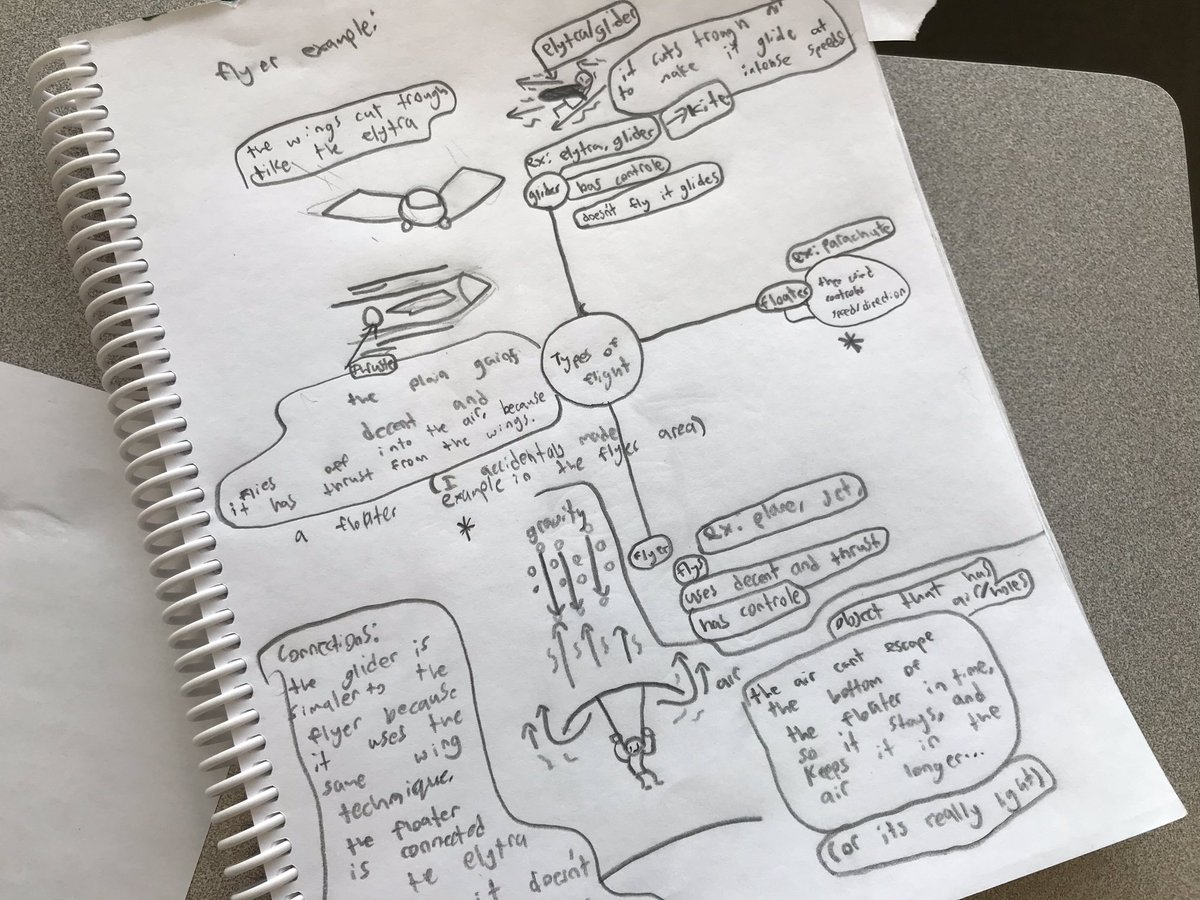 flyer example:
the wings cut trough
like the elytra
elytra/glider
it cuts trough air
to make it glide at
intense speeds
→Kite
ex: elytra, glider
glider
has controle
doesn't fly it glides
ex: parachute
floater
the wind
controls
speed/direction
*
Types of
flight
thruster
the plain gains
decent and
flies off into the air, because
it has thrust from the wings.
(I accidentaly made
a floater example in the flyer area)
*
flyer
ex: plane, jet,
flys
uses decent and thrust
has controle
gravity
air
object that has
air/holes
the air cant escape
the bottom of
the floater in time,
so it stays, and
keeps it in the
air longer...
(or its really light)
Connections:
the glider is
simaler to the
flyer because
it uses the
same wing
technique.
the floater
is connected
te elytra
it doesn't